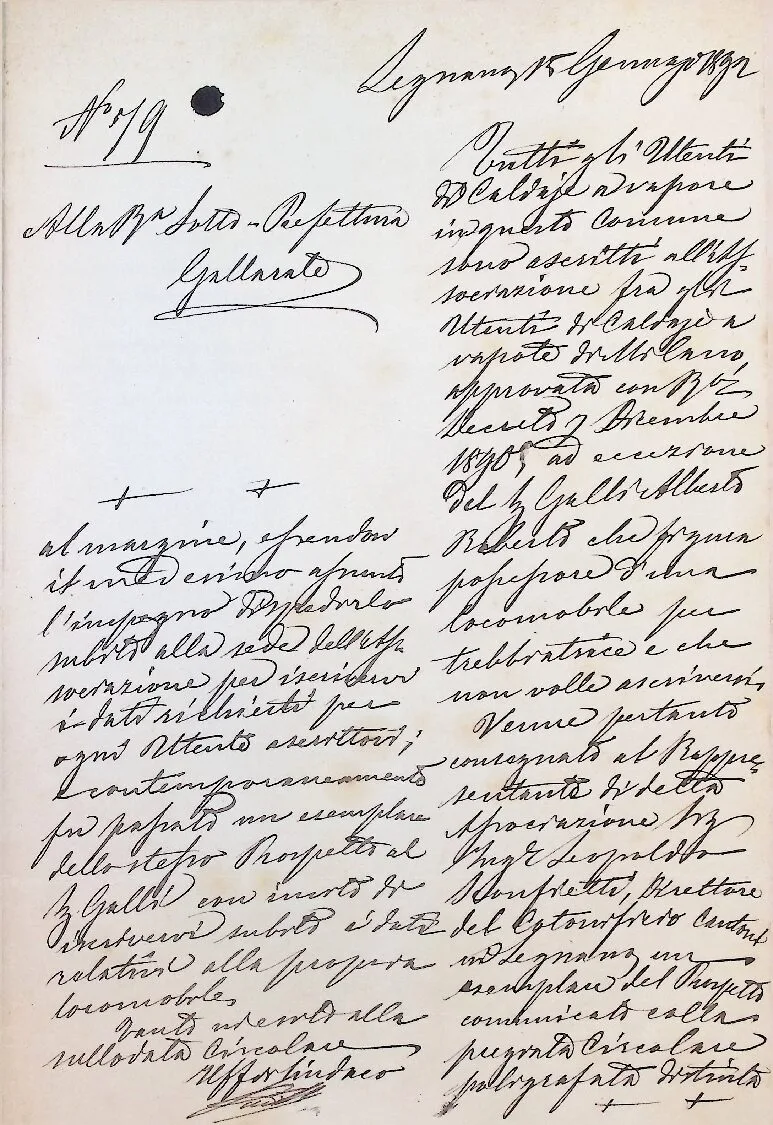 Legnano, 15 Gennajo 1892
Nº 179
Alla Rª Sotto-Prefettura
Gallarate
Tutti gli Utenti
di Caldaje a vapore
in questo Comune
sono ascritti all'As-
sociazione fra gli
Utenti di Caldaje a
vapore di Milano,
approvata con
Decreto 7 Dicembre
1890, ad eccezione
del Sig Galli Alberto
Roberto che figura
possessore d'una
locomobile per
trebbiatrice e che
non volle ascriversi.
Venne pertanto
consegnato al Rappre-
sentante di detta
Associazione Sig
Ingr Leopoldo
Direttore
del Cotonificio Cantoni
in Legnano, un
esemplare del Prospetto
comunicato colla
pregiata Circolare
poligrafata distinta
al margine, essendosi
il medesimo assunto
l'impegno di spedirlo
subito alla sede dell'As-
sociazione per iscrivervi
i dati richiesti per
ogni Utente ascrittovi;
e contemporaneamente
fu passato un esemplare
dello stesso Prospetto al
Sig Galli con invito di
inscrivervi subito i dati
relativi alla propria
locomobile.
Tanto in esito alla
sullodata Circolare
Uff di Sindaco